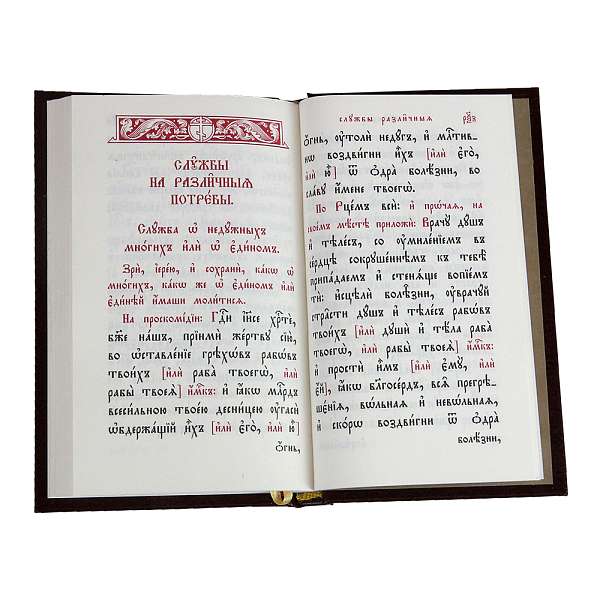 СЛꙊ́ЖБЫ
НА РАЗЛИ̑ЧНЫѦ
ПОТРЕ́БЫ.
Слꙋ́жба ѡ҆ недꙋ́жныхъ
мно́гихъ и҆лѝ ѡ҆ є҆ди́номъ.
Зрѝ, і҆ере́ю, и҆ сохранѝ, ка́кѡ ѡ҆
мно́гихъ, ка́кѡ же ѡ҆ є҆ди́номъ и҆лѝ
є҆ди́нѣй и҆́маши моли́тисѧ.
На проскомі́дїи: Гдⷭ҇и і҆и҃се хрⷭ҇те́,
бж҃е на́шъ, прїимѝ же́ртвꙋ сїю̀,
во ѡ҆ставле́нїе грѣхѡ́въ рабѡ́въ
твои́хъ [и҆лѝ раба̀ твоегѡ̀, и҆лѝ
рабы̀ твоеѧ̀] и҆́м҃къ: и҆ ꙗ҆́кѡ млⷭ҇рдъ
всеси́льною твое́ю десни́цею ᲂу҆гасѝ
ѡ҆бдержа́щїй и҆̀хъ [и҆лѝ є҆го̀, и҆лѝ ю҆̀]
ᲂ҆́гнь,
слꙋ́жбы разли̑чныѧ
ᲂ҆́гнь, ᲂу҆толѝ недꙋ́гъ, и҆ млⷭ҇тив-
нѡ воздви́гни и҆̀хъ [и҆лѝ є҆го̀,
и҆лѝ ю҆̀] ѿ ѻ҆дра̀ болѣ́зни, во
сла́вꙋ и҆́мене твоегѡ̀.
По Рце́мъ всѝ: и҆ прѡ́чаѧ, на
свое́мъ мѣ́стѣ приложѝ: Врачꙋ̀ дꙋ́шъ
и҆ тѣле́съ, со ᲂу҆миле́нїемъ въ
се́рдцѣ сокрꙋше́ннѣмъ къ тебѣ̀
припа́даемъ и҆ стенѧ́ще вопїе́мъ
тѝ: и҆сцѣлѝ болѣ̑зни, ᲂу҆врачꙋ́й
стра̑сти дꙋ́шъ и҆ тѣле́съ рабѡ́въ
твои́хъ [и҆лѝ дꙋшѝ и҆ тѣ́ла раба̀
твоегѡ̀, и҆лѝ рабы̀ твоеѧ̀] и҆́м҃къ:
и҆ простѝ и҆̀мъ [и҆лѝ є҆мꙋ̀, и҆лѝ
є҆́й], ꙗ҆́кѡ бл҃госе́рдъ, всѧ̑ прегрѣ-
шє́нїѧ, вѡ́льнаѧ и҆ невѡ́льнаѧ,
и҆ ско́рѡ воздви́гни ѿ ѻ҆дра̀
болѣ́зни,